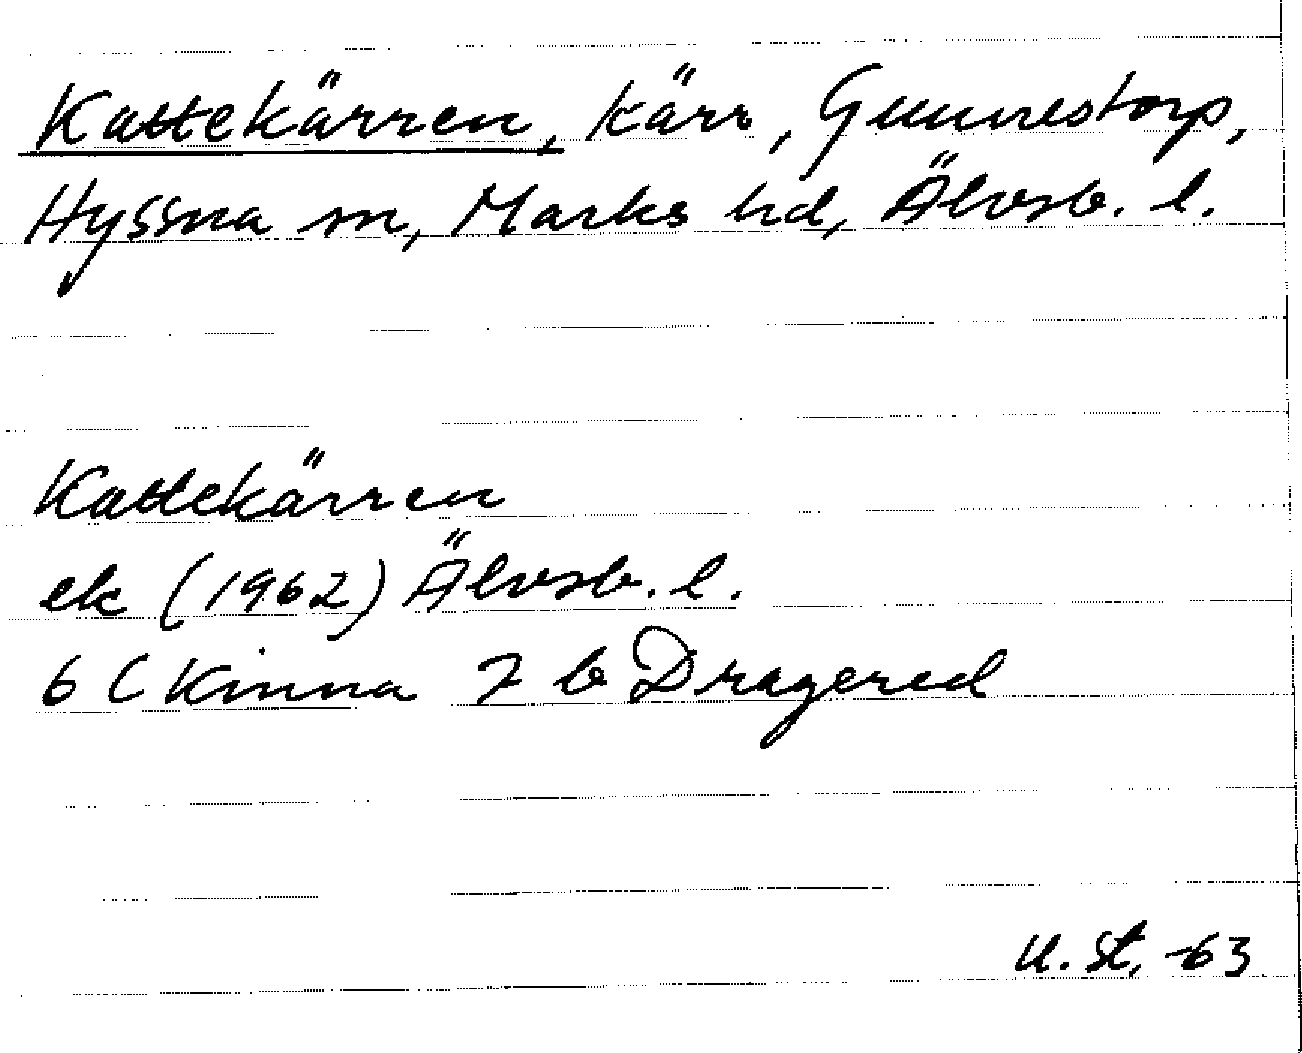 Kattekärren, kärr, Gunnestorp,
Hyssna sn, Marks hd, Älvsb. l.
Kattekärren
ek (1962) Älvsb. l.
6 C Kinna 7 b Dragered
U. St, -63